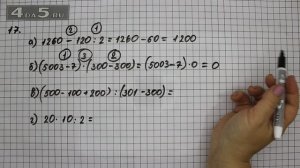 4 АБ 5.ru
17.
2 1
а) 1260 - 120 : 2 = 1260 - 60 = 1200
1 3 2
б) (5003 - 7) · (300 - 300) = (5003 - 7) · 0 = 0
в) (500 - 100 + 200) : (301 - 300) =
г) 20 · 10 : 2 =